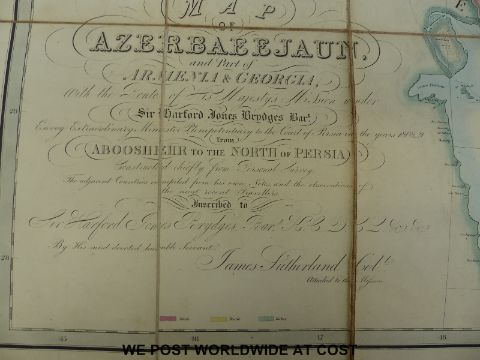 MAP
OF
AZERBAEEJAUN,
and Part of
ARMENIA & GEORGIA,
With the Route of His Majesty's Mission under
Sir Harford Jones Brydges Bart.
Envoy Extraordinary & Minister Plenipotentiary to the Court of Persia in the years 1808,9
from
ABOOSHEHR TO THE NORTH OF PERSIA
Constructed chiefly from Personal Survey
The adjacent Countries compiled from his own Notes and the observations of
the most recent Travellers
Inscribed to
Sir Harford Jones Brydges, Bart. K.C. D.C.L.
By His most devoted humble Servant
James Sutherland Col.
Attached to the Mission
29
28
45
46
47
WE POST WORLDWIDE AT COST